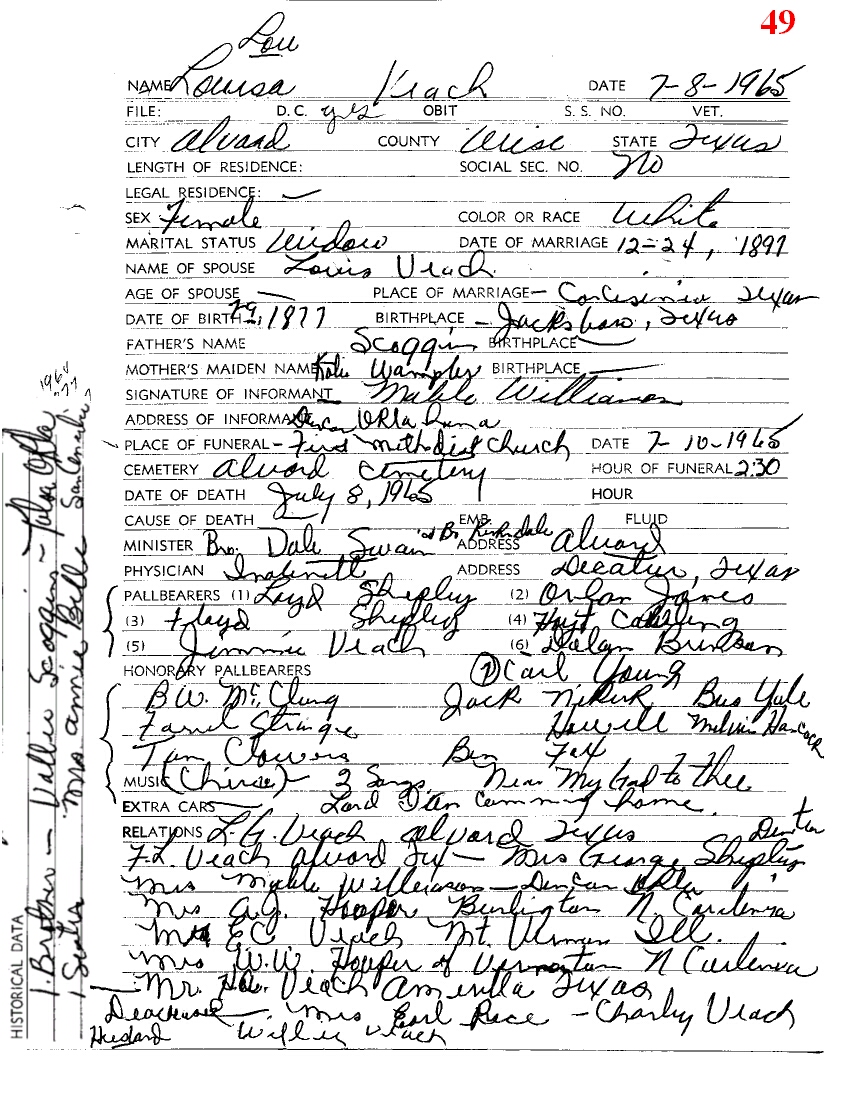 49
Lou
NAME Louisa Veach DATE 7-8-1965
FILE: D.C. yes OBIT S. S. NO. VET.
CITY Alvord COUNTY Wise STATE Texas
LENGTH OF RESIDENCE: SOCIAL SEC. NO. No
LEGAL RESIDENCE: —
SEX Female COLOR OR RACE White
MARITAL STATUS Widow DATE OF MARRIAGE 12-24, 1897
NAME OF SPOUSE Louis Veach
AGE OF SPOUSE — PLACE OF MARRIAGE — Texas
DATE OF BIRTH 1877 BIRTHPLACE — Jacksboro, Texas
FATHER'S NAME Scoggin BIRTHPLACE —
MOTHER'S MAIDEN NAME Katie Wampler BIRTHPLACE —
SIGNATURE OF INFORMANT Mable Williamson
ADDRESS OF INFORMANT Duncan Oklahoma
PLACE OF FUNERAL - First Methodist Church DATE 7-10-1965
CEMETERY Alvord Cemetery HOUR OF FUNERAL 2:30
DATE OF DEATH July 8, 1965 HOUR
CAUSE OF DEATH EMB. FLUID
MINISTER Bro. Dale Swain & Br. Kirkendale ADDRESS Alvord
PHYSICIAN ADDRESS Decatur, Texas
PALLBEARERS (1) Loyd Shipley (2) Orlan Jones
(3) Floyd Shipley (4) Hoyt
(5) Jimmie Veach (6) Dolan Brunson
HONORARY PALLBEARERS (7) Carl Young
B.W. McClung Jack Bus Yule
Strange Howell Melvin Hancock
Tom Clowers Ben Fox
MUSIC (Choir) - 3 Songs Near My God to Thee
EXTRA CARS Lord I'am Comming home
RELATIONS L.G. Veach Alvord Texas Denton
F.L. Veach Alvord Tex — Mrs George Shipley
Mrs Mable Williamson — Duncan Okla
Mrs A.J. Hooper Burlington N. Carolina
E C Veach Mt. Vernon Ill.
Mrs W.W. Hooper of N Carlonia
Mr. Veach Amarilla Texas
— Mrs Earl Race - Charley Veach
Husband Willie Veach
HISTORICAL DATA
1. Brother — Vallie Scoggins — Tulsa Okla
1 Sister Mrs Annie Belle